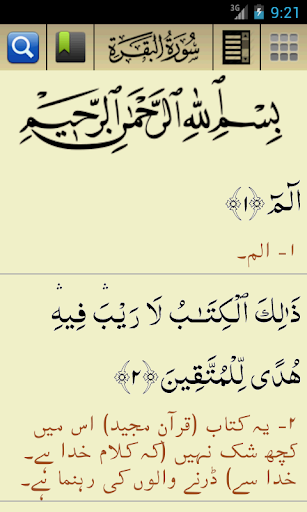 3G 9:21
سُورَةُ البَقَرَة
بِسْمِ ٱللَّهِ ٱلرَّحْمَٰنِ ٱلرَّحِيمِ
الٓمٓ ﴿١﴾
١- الم۔
ذَٰلِكَ ٱلْكِتَابُ لَا رَيْبَ ۛ فِيهِ ۛ
هُدًى لِّلْمُتَّقِينَ ﴿٢﴾
٢- یہ کتاب (قرآن مجید) اس میں
کچھ شک نہیں (کہ کلام خدا ہے۔
خدا سے) ڈرنے والوں کی رہنما ہے۔